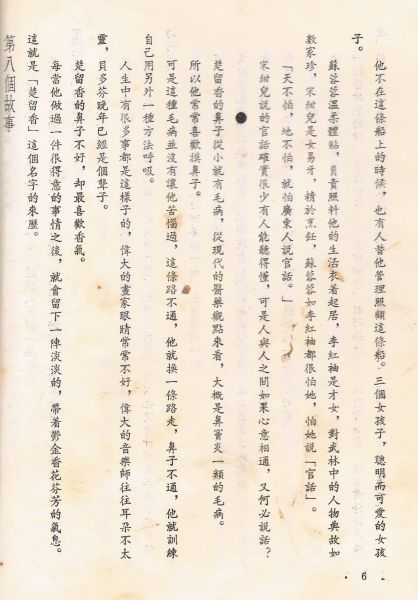 他不在這條船上的時候，也有人替他管理照顧這條船。三個女孩子，聰明而可愛的女孩
子。
蘇蓉蓉溫柔體貼，負責照料他的生活衣着起居，李紅袖是才女，對武林中的人物典故如
數家珍，宋甜兒是女易牙，精於烹飪，蘇蓉蓉如李紅袖都很怕她，怕她說「官話」。
「天不怕，地不怕，就怕廣東人說官話。」
宋甜兒說的官話確實很少有人能聽得懂，可是人與人之間如果心意相通，又何必說話？
楚留香的鼻子從小就有毛病，從現代的醫藥觀點來看，大概是鼻竇炎一類的毛病。
所以他常常喜歡摸鼻子。
可是這種毛病並沒有讓他苦惱過，這條路不通，他就換一條路走，鼻子不通，他就訓練
自己用另外一種方法呼吸。
人生中有很多事都是這樣子的，偉大的畫家眼睛常常不好，偉大的音樂師往往耳朵不太
靈，貝多芬晚年已經是個聾子。
楚留香的鼻子不好，却最喜歡香氣。
每當他做過一件很得意的事情之後，就會留下一陣淡淡的，帶着鬱金香花芬芳的氣息。
這就是「楚留香」這個名字的來歷。
第八個故事
·6·